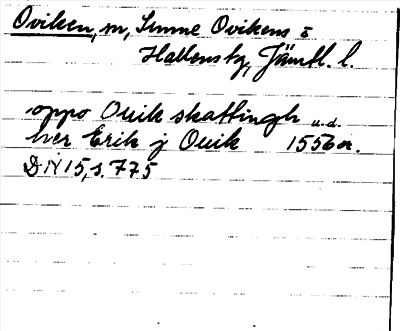 Oviken, m, Sunne Ovikens o
Hallens tg, Jämtl. l.
oppo Ouik skattingh u.d.
her Erik j Ouik 1556 or.
DN 15, s. 775